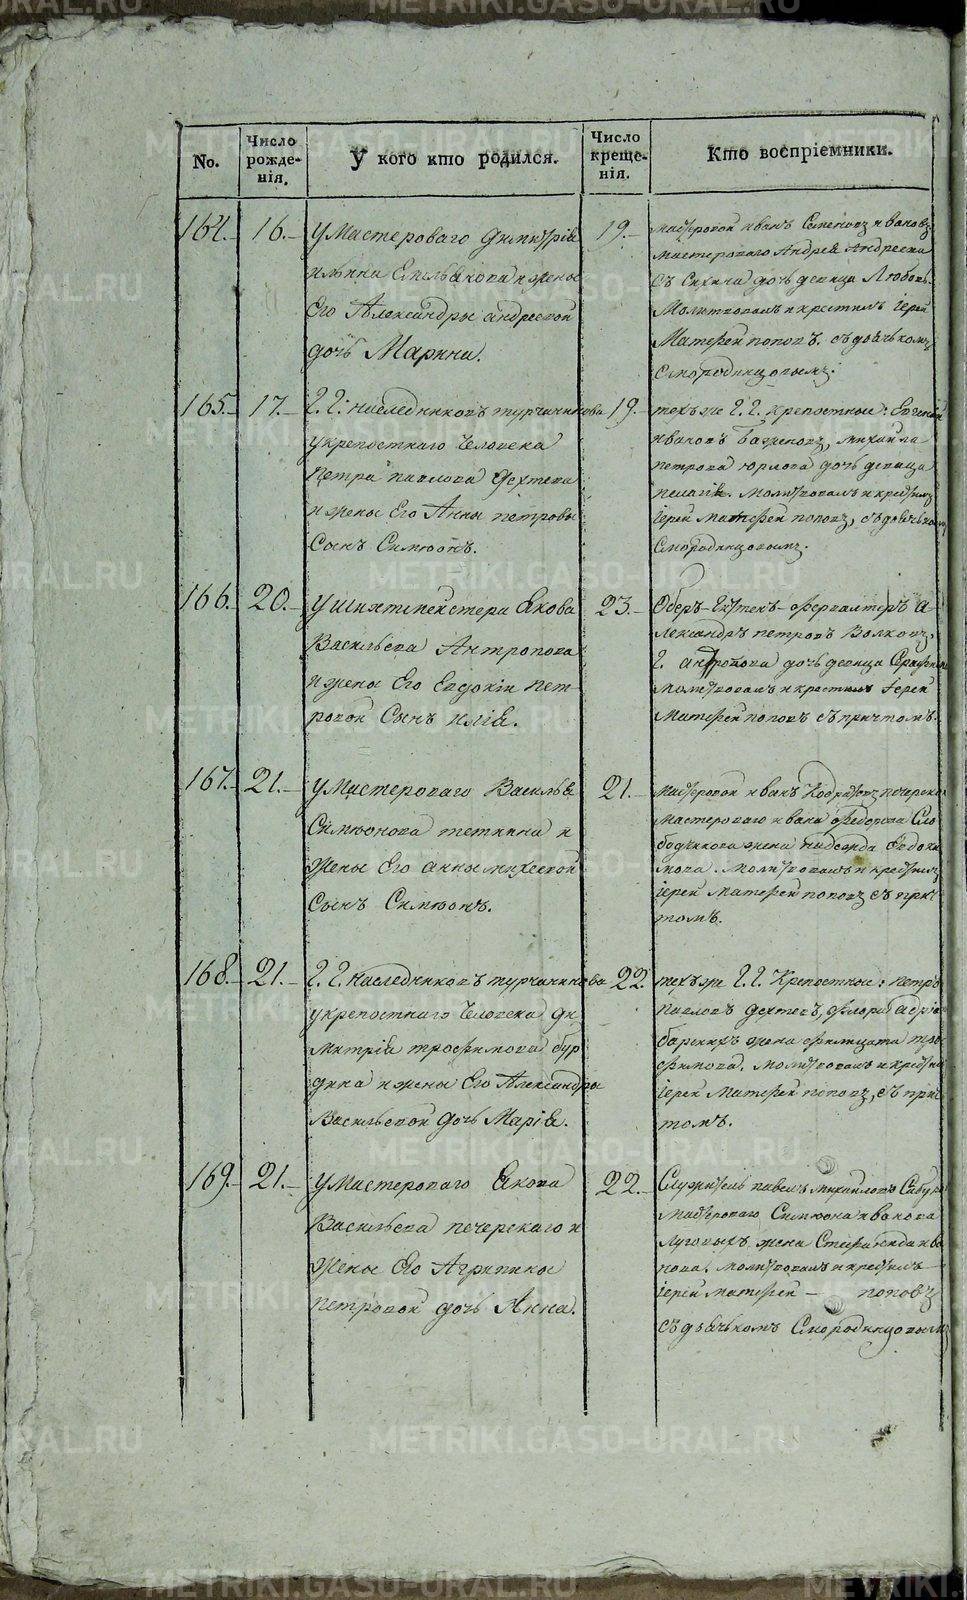 No.
Число рожде-нія.
У кого кто родился.
Число креще-нія.
Кто воспріемники.
164. 16.
у Мастероваго Димитрія
ильина Емельянова и жены
Его Александры андреевой
дочь Марина.
19.
мастеровой иванъ Семеновъ ивановъ
мастероваго Андрея Андреева
дочь девица Любовь.
Молитвовалъ и крестилъ Іерей
Матфей поповъ. съ дьячькомъ
Смородинцовымъ.
165. 17.
Г. Г. наследниковъ турчанинова
у крепостнаго Человека
Петра павлова Дехтева
и жены Его Анны петровы
Сынъ Симеонъ.
19.
техъ же Г. Г. крепостные: Евгений
ивановъ Баженовъ, михайла
петрова юрлова дочь девица
пелагія. молитвовалъ и крестилъ
Іерей Матфей поповъ, съ дьячькомъ
Смородинцовымъ.
166. 20.
у шихтмейстера Якова
Васильева Антропова
и жены Его Евдокіи Пет-
ровой Сынъ илія.
23.
Оберъ- - -ферваЛтеръ а-
лександръ петровъ Волковъ,
Г. антропова дочь девица
молитвовалъ и крестилъ Іерей
Матфей поповъ съ притомъ.
167. 21.
у Мастероваго Василья
Симеонова теткина и
жены Его анны михеевой
Сынъ Симеонъ.
21.
мастеровой иванъ
мастероваго ивана федорова Сло
бодчикова жена надежда Евдоки
мова. молитвовалъ и крестилъ
Іерей Матфей поповъ съ прич
томъ.
168. 21.
Г. Г. наследниковъ турчанинова
у крепостнаго Человека ди
митрія трофимова бур
дина и жены Его Александры
Васильевой дочь Марія.
22.
техъ же Г. Г. Крепостные: петръ
павловъ дехтевъ, флора
жена фелицата тро
фимова. молитвовалъ и крестилъ
Іерей Матфей поповъ, съ прич
томъ.
169. 21.
у Мастероваго Якова
Васильева печерскаго и
жены Его Агрипины
петровой дочь Анна.
22.
Служитель павелъ михайловъ
Мастероваго Симеона иванова
Луговыхъ жена Стефанида ива
нова. молитвовалъ и крестилъ
Іерей матфей - поповъ
съ дьячькомъ Смородинцовымъ
METRIKI.GASO-URAL.RU